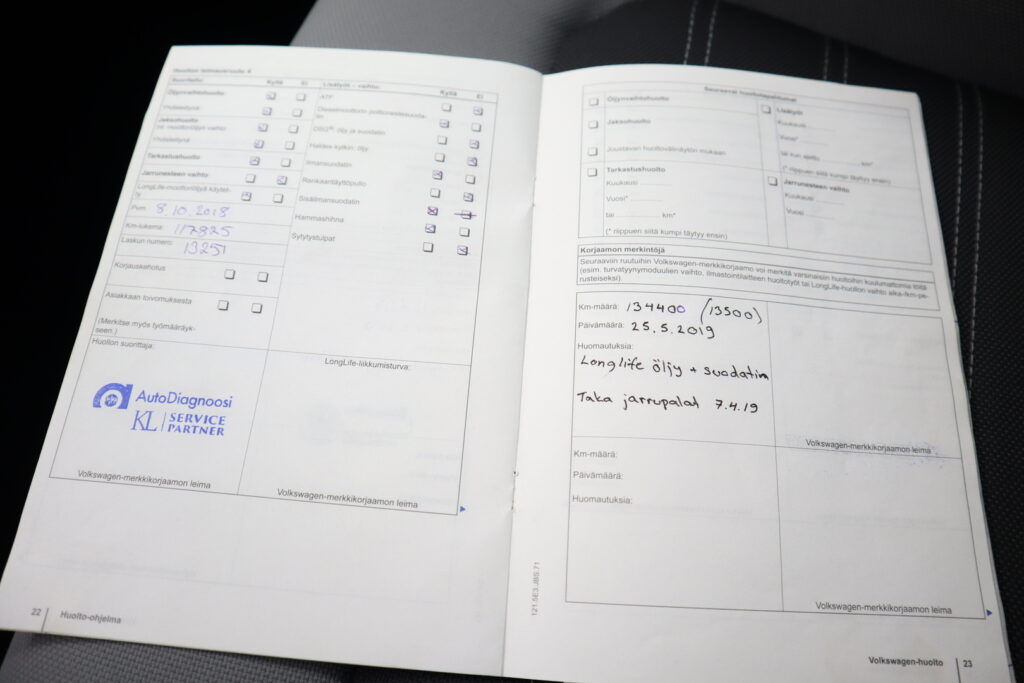 Suoritettu: Kyllä Ei
Öljynvaihtohuolto
Yhdistettynä:
Jaksohuolto
Yhdistettynä:
Tarkastushuolto
Jarrunesteen vaihto
LongLife-moottoriöljyä käytetty
Pvm: 8.10.2018
Km-lukema: 117925
Laskun numero: 13251
Korjauskehotus
Asiakkaan toivomuksesta
(Merkitse myös työmääräyk-
seen.)
Huollon suorittaja:
AutoDiagnoosi
KL SERVICE
PARTNER
Volkswagen-merkkikorjaamon leima
Lisätyöt - vaihto: Kyllä Ei
ATF
DSG®: öljy ja suodatin
Haldex-kytkin: öljy
Ilmansuodatin
Renkaantäyttöpullo
Sisäilmansuodatin
Hammashihna
Sytytystulpat
LongLife-liikkumisturva:
Volkswagen-merkkikorjaamon leima
22 Huolto-ohjelma
Seuraavat huoltotapahtumat
Öljynvaihtohuolto
Jaksohuolto
Joustavan huoltovälinäytön mukaan
Tarkastushuolto
Kuukausi ..........
Vuosi* ..........
tai .......... km*
(* riippuen siitä kumpi täytyy ensin)
Lisätyöt
Kuukausi ..........
Vuosi* ..........
tai kun ajettu .......... km*
(* riippuen siitä kumpi täytyy ensin)
Jarrunesteen vaihto
Kuukausi ..........
Vuosi ..........
Korjaamon merkintöjä
Seuraaviin ruutuihin Volkswagen-merkkikorjaamo voi merkitä varsinaisiin huoltoihin kuulumattomia töitä
(esim. turvatyynymoduulien vaihto, ilmastointilaitteen huoltotyöt tai LongLife-huollon vaihto aika-/km-pe-
rusteiseksi).
Km-määrä: 134400 (13500)
Päivämäärä: 25.5.2019
Huomautuksia:
Longlife öljy + suodatin
Taka jarrupalat 7.4.19
Volkswagen-merkkikorjaamon leima
Km-määrä:
Päivämäärä:
Huomautuksia:
Volkswagen-merkkikorjaamon leima
121.5E3.JBS.71
Volkswagen-huolto 23